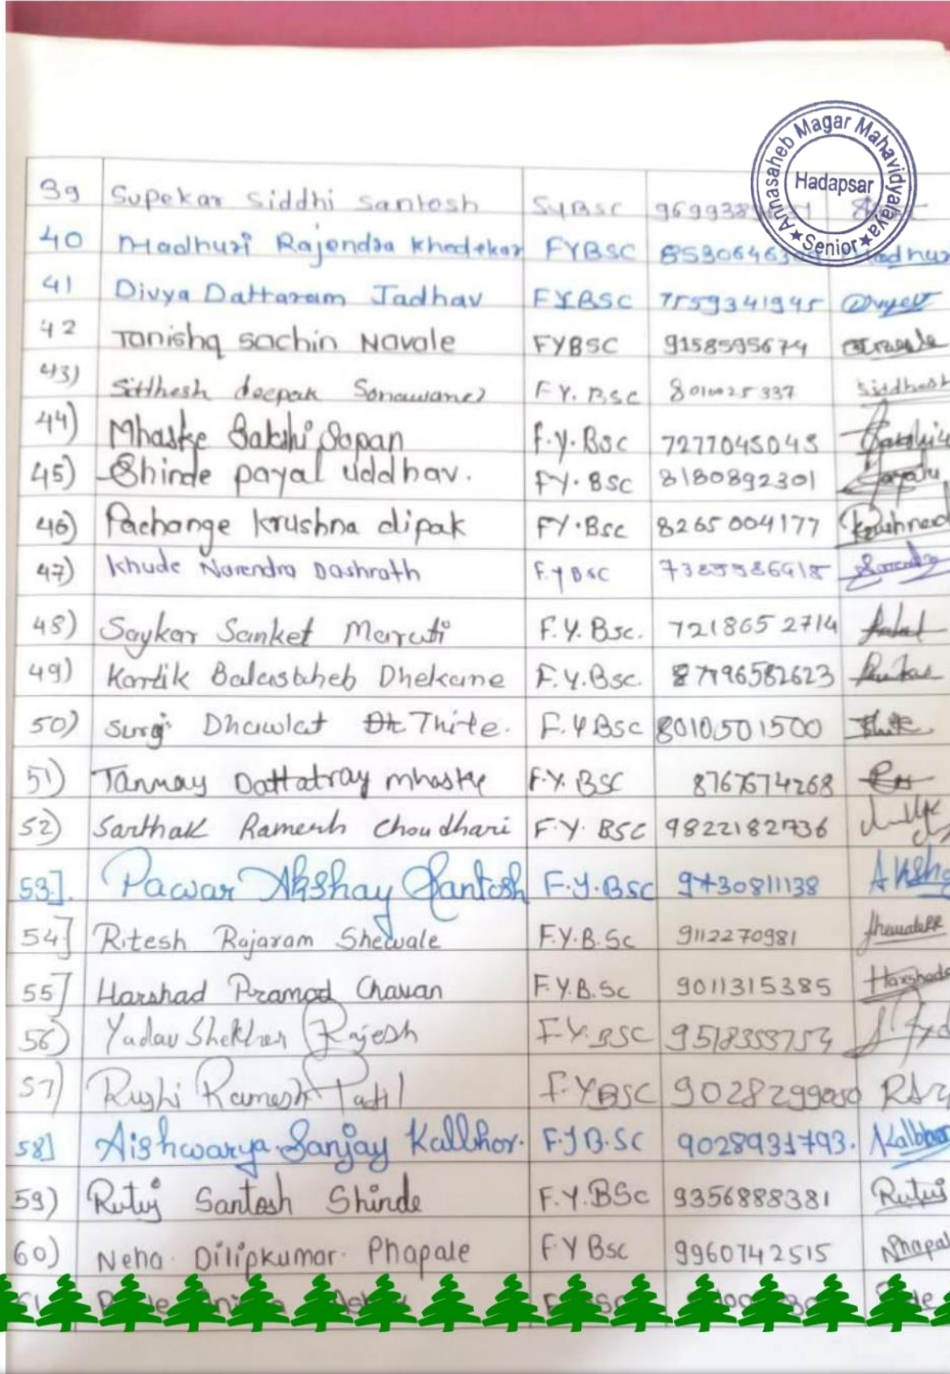 Annasaheb Magar Mahavidyalaya
Hadapsar
★ Senior ★
39 Supekar Siddhi Santosh SYBSC
40 Madhuri Rajendra Khedekar FYBSC
41 Divya Dattaram Jadhav FYBSC 7559341945
42 Tanishq Sachin Navale FYBSC 9158595674
43) Siddhesh deepak Sonawane F.Y. BSC 8010025337 Siddhesh
44) Mhaske Sakshi Sopan F.Y. BSC 7277045045
45) Shinde payal uddhav. FY. BSC 8180892301
46) Pachange Krushna dipak FY. BSC 8265004177
47) Khude Narendra Dashrath F.Y BSC
48) Saykar Sanket Maruti F.Y. Bsc. 7218652714
49) Kartik Balasaheb Dhekane F.Y.Bsc.
50) Suraj Dhawlat Thite. F.Y BSC 8010501500
51) Tanmay Dattatray mhaske F.Y. BSC 8767674268
52) Sarthak Ramesh Choudhari F.Y. BSC 9822182736
53]. Pawar Akshay Santosh F.Y.BSC 9730811138
54] Ritesh Rajaram Shewale F.Y.B.Sc 9112270981
55] Harshad Pramod Chavan F.Y.B.Sc 9011315385
56) Yadav Shekhar Rajesh F.Y.BSC
57) Rushi Ramesh Patil F.YBSC
58] Aishwarya Sanjay Kalbhor. F.Y B.SC 9028931793.
59) Rutuj Santosh Shinde F.Y.BSc 9356888381 Rutuj
60) Neha Dilipkumar Phapale F.Y Bsc 9960742515